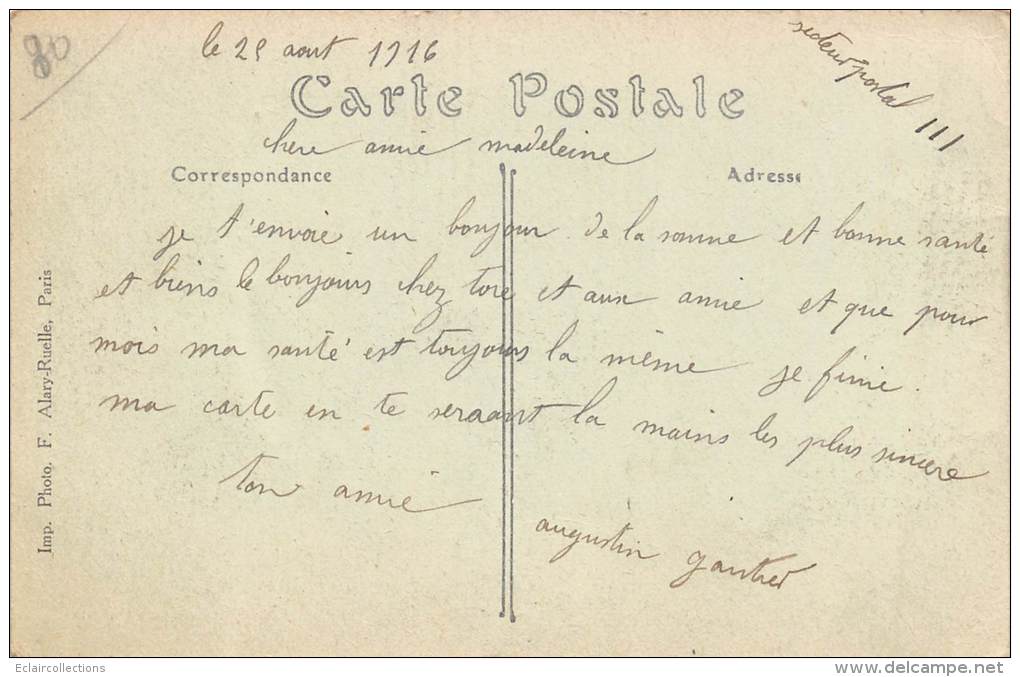 80
le 25 aout 1916
secteur postal 111
Carte Postale
chere amie madeleine
Correspondance
Adresse
je t'envoie un bonjour de la somme et bonne santé
et biens le bonjours chez tore et aux amie et que pour
mois ma santé est toujours la même je finie
ma carte en te seraant la mains les plus sincere
ton amie
augustin gautier
Imp. Photo. F. Alary-Ruelle, Paris
Eclaircollections
www.delcampe.net